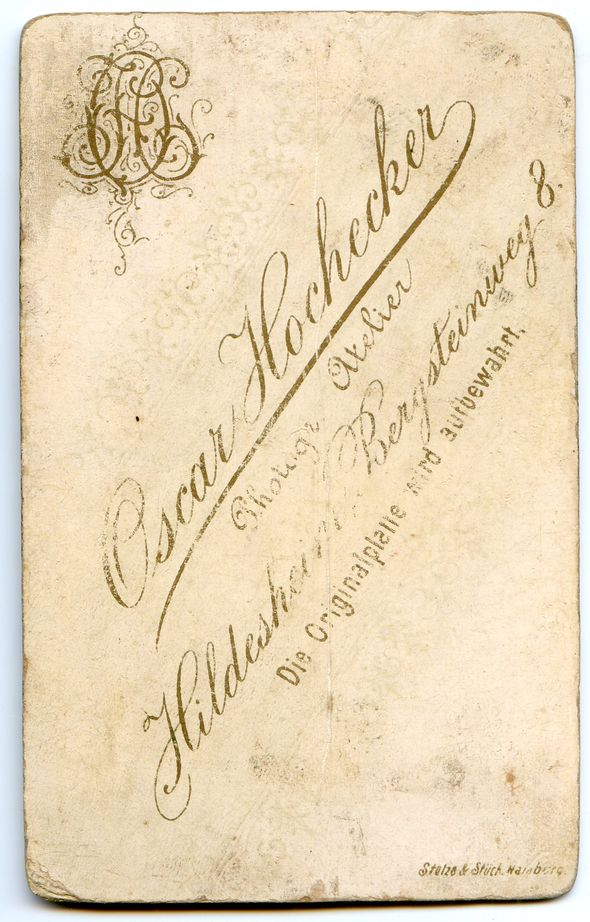 Oscar Hochecker
Photogr. Atelier
Hildesheim, Bergsteinweg 8.
Die Originalplatte wird aufbewahrt.
Stelze & Stück. Hamburg.